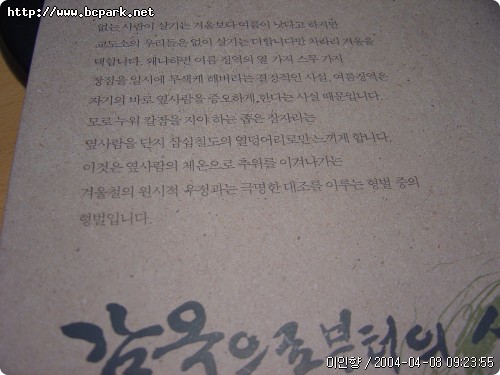 http://www.bcpark.net
없는 사람이 살기는 겨울보다 여름이 낫다고 하지만
교도소의 우리들은 없이 살기는 더합니다만 차라리 겨울을
택합니다. 왜냐하면 여름 징역의 열 가지 스무 가지
장점을 일시에 무색케 해버리는 결정적인 사실, 여름징역은
자기의 바로 옆사람을 증오하게 한다는 사실 때문입니다.
모로 누워 칼잠을 자야 하는 좁은 잠자리는
옆사람을 단지 삼십칠도의 열덩어리로만 느끼게 합니다.
이것은 옆사람의 체온으로 추위를 이겨나가는
겨울철의 원시적 우정과는 극명한 대조를 이루는 형벌 중의
형벌입니다.
감옥으로부터의
이민향 / 2004-04-08 09:23:55